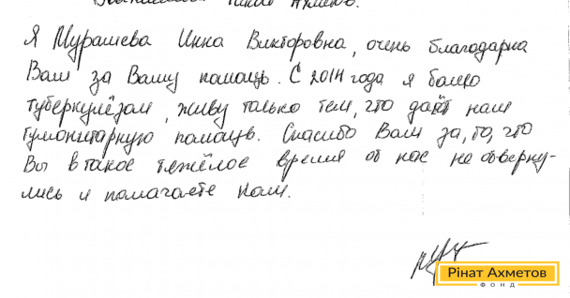 Я Мурашева Инна Викторовна, очень благодарна
Вам за Вашу помощь. С 2014 года я болею
туберкулёзом, живу только тем, что даёт нам
гумонитарную помощь. Спасибо Вам за, то, что
Вы в такое тяжёлое время от нас не отверну-
лись и помагаете нам.
Рінат Ахметов
ФОНД